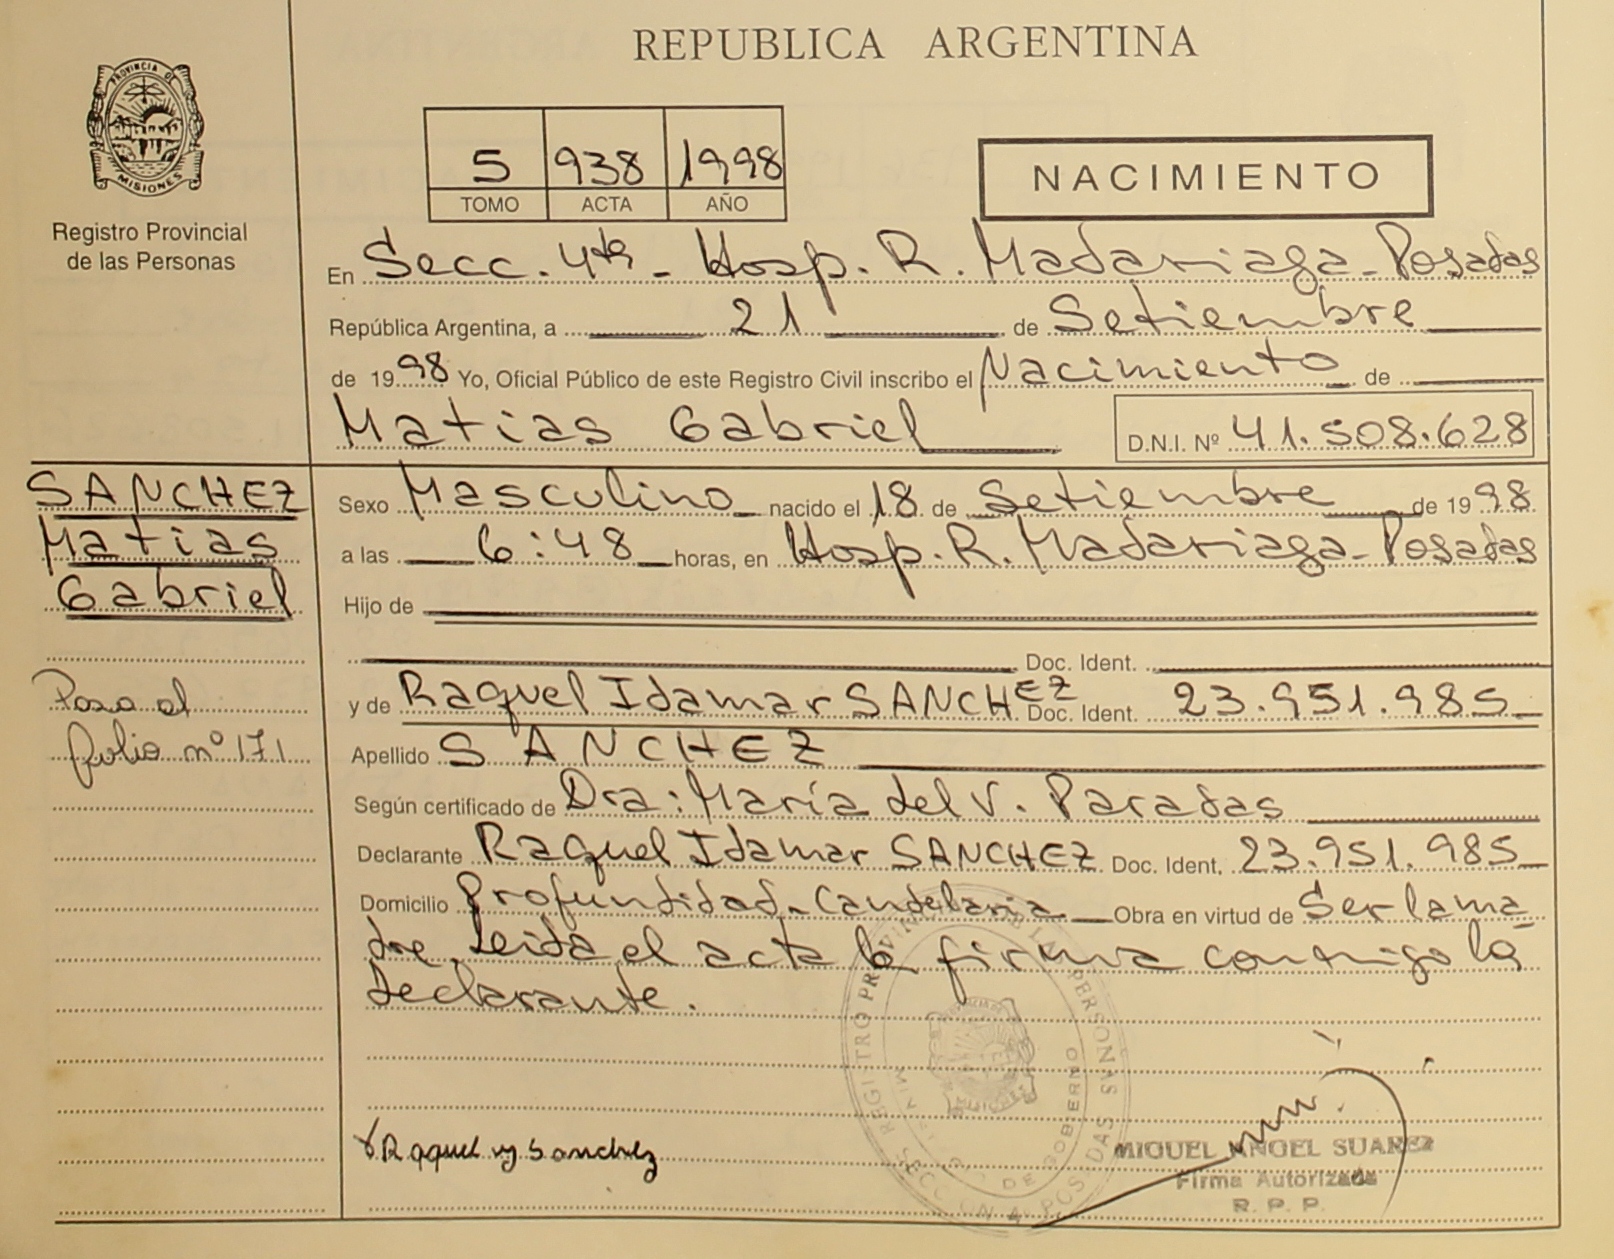 REPUBLICA ARGENTINA
PROVINCIA DE
MISIONES
Registro Provincial
de las Personas
5 938 1998
TOMO ACTA AÑO
NACIMIENTO
En Secc. 4ta - Hosp. R. Madariaga - Posadas
República Argentina, a 21 de Setiembre
de 1998 Yo, Oficial Público de este Registro Civil inscribo el Nacimiento de
Matias Gabriel D.N.I. Nº 41.508.628
SANCHEZ
Matias
Gabriel
Sexo Masculino nacido el 18 de Setiembre de 1998.
a las 6:48 horas, en Hosp. R. Madariaga - Posadas
Hijo de
Doc. Ident.
Pasa al
folio nº 171
y de Raquel Idamar SANCHEZ Doc. Ident. 23.951.985
Apellido SANCHEZ
Según certificado de Dra: María del V. Paradas
Declarante Raquel Idamar SANCHEZ Doc. Ident. 23.951.985
Domicilio Profundidad - Candelaria Obra en virtud de Ser la ma
dre. Leida el acta la firma conmigo la
declarante.
REGISTRO PROVINCIAL DE LAS PERSONAS
SECCION 4ª POSADAS
DE GOBIERNO
Raquel y Sanchez
MIGUEL ANGEL SUAREZ
Firma Autorizada
R. P. P.